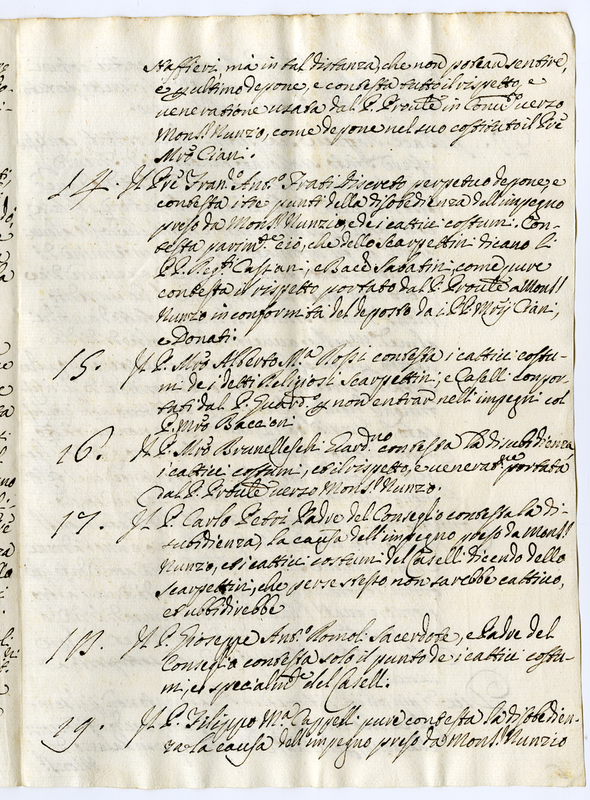 Staffieri, mà in tal distanza, che non potean sentire,
e quultimo depone, e contesta tutto il rispetto, e
veneratione usata dal P. Proule in Conu.to verso
Mons.r Nunzio, come depone nel suo costituto il Pre
Mro Ciani.
14. Il Pre Fran.o Ant.o Frati Discreto perpetuo depone, e
contesta i tre punti della disobedienza dell'impegno
preso da Mons.r Nunzio, e de i cattivi costumi. Con-
testa parim.te ciò, che dello Scarpettini dicano li
P.P. Castani, e Bacc. Sabatini, come pure
contesta il rispetto portato dal P. Proule a Mons.r
Nunzio in conformità del deposto da i P.P. Mri Ciani,
e Donati.
15. Il P. Mro Alberto M.a Rossi contessa i cattivi costu-
mi de i detti Religiosi Scarpettini, e Caselli compor-
tati dal P. Guard.o p non entrar nell'impegni col
P. Mro Baccioni
16. Il P. Mro Brunelleschi Guard.no contessa la disubidienza
i cattivi costumi, et il rispetto, e venerat.ne portata
dal P. Proule verso Mons.r Nunzio.
17. Il P. Carlo Petri Padre del Conseglio contessa la di-
subidienza, la causa dell'impegno preso da Mons.r
Nunzio, et i cattivi costumi del Caselli dicendo dello
Scarpettini, che per se stesso non sarebbe cattivo,
et ubbidirebbe
18. Il P. Gioseppe Ant.o Romoli Sacerdote, e Padre del
Conseglio contessa solo il punto de i cattivi costu-
mi, e special.te del Caselli.
19. Il P. Filippo M.a Cappelli pure contesta la disobedien-
za la causa dell'impegno preso da Mons.r Nunzio